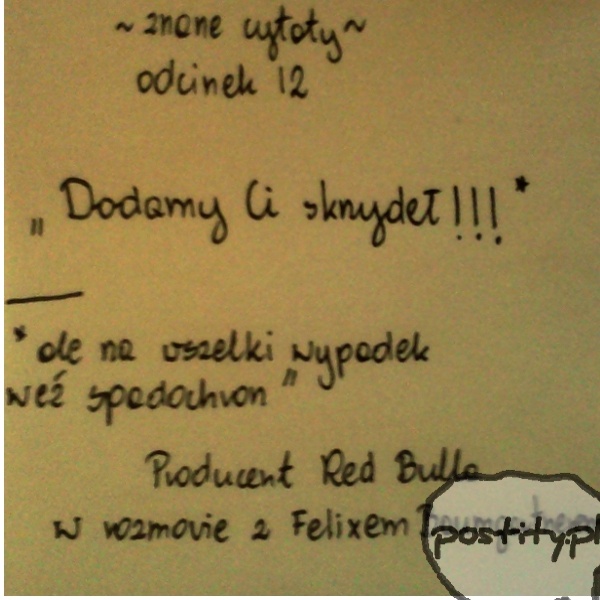 ~ znane cytaty ~
odcinek 12
„Dodamy Ci skrzydeł!!!*
* ale na wszelki wypadek
weź spadochron"
Producent Red Bulla
w rozmowie z Felixem
postity.pl